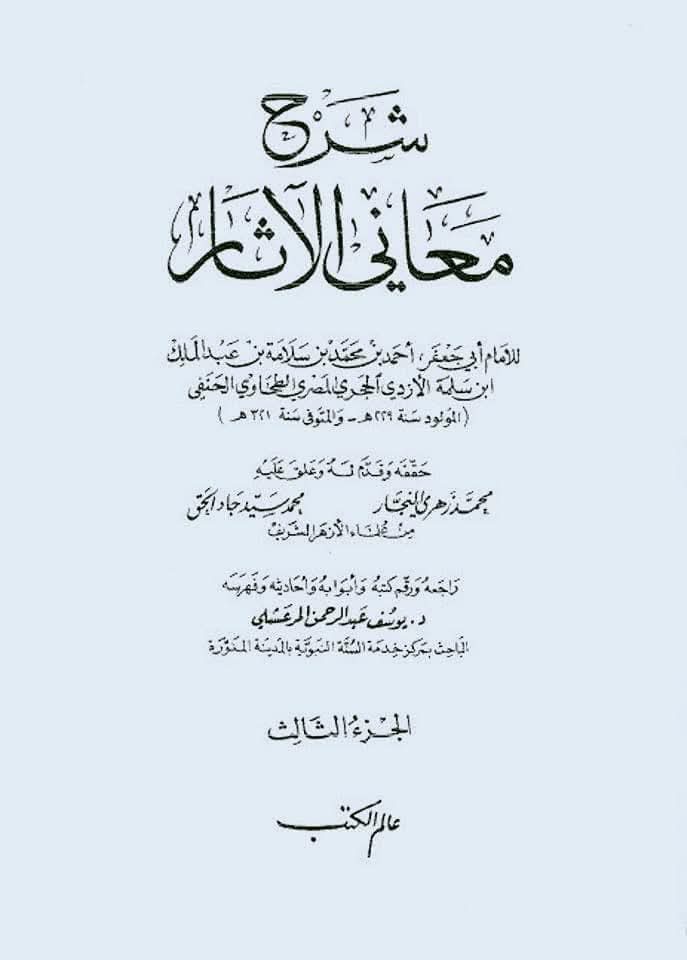 شرح
معاني الآثار
للإمام أبي جعفر، أحمد بن محمد بن سلامة بن عبد الملك
ابن سلمة الأزدي الحجري المصري الطحاوي الحنفي
(المولود سنة ٢٢٩ هـ - والمتوفى سنة ٣٢١ هـ)
حققه وقدم له وعلق عليه
محمد زهري النجار محمد سيد جاد الحق
من علماء الأزهر الشريف
راجعه ورقم كتبه وأبوابه وأحاديثه وفهرسه
د. يوسف عبد الرحمن المرعشلي
الباحث بمركز خدمة السنة النبوية بالمدينة المنورة
الجزء الثالث
عالم الكتب